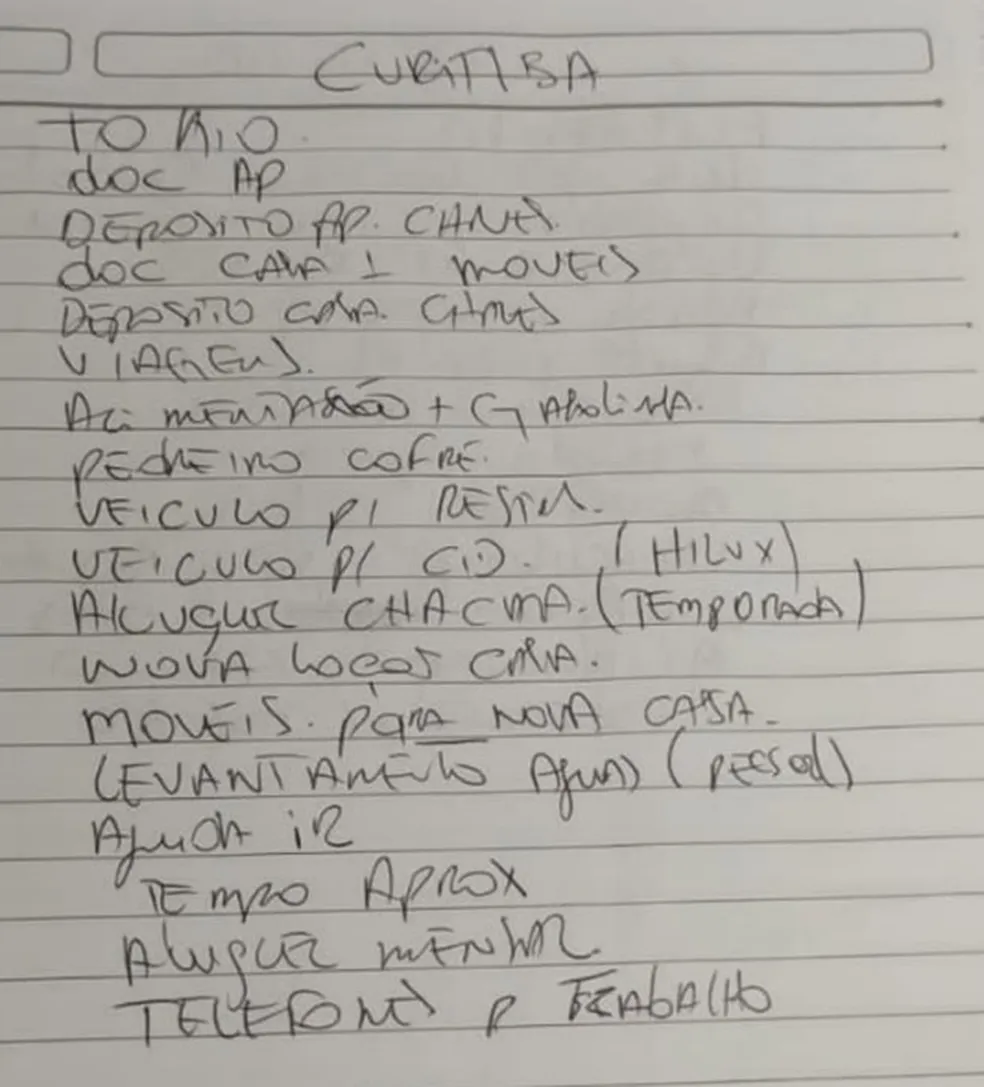 CURITIBA
TO RIO
doc AP
DEPOSITO AP. CHAVES
doc CASA 1 MOVEIS
DEPOSITO CASA. CHAVES
VIAGENS.
ALIMENTAÇÃO + GASOLINA.
PEDREIRO COFRE.
VEICULO P/
VEICULO P/ (HILUX)
ALUGUEL CHACARA. (TEMPORADA)
NOVA CASA.
MOVEIS. PARA NOVA CASA.
LEVANTAMENTO (PESSOAL)
AJUDA
TEMPO APROX
ALUGUEL MENSAL
TELEFONES P TRABALHO